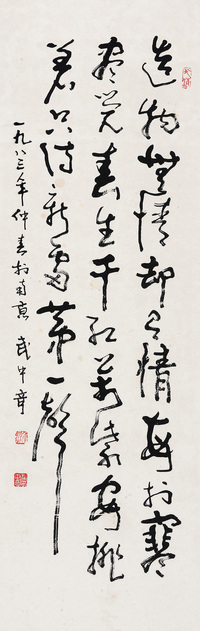 造物無情却有情每於寒
盡覺春生千紅萬紫安排
著只待新雷第一聲
一九八三年仲春於南京 武中奇